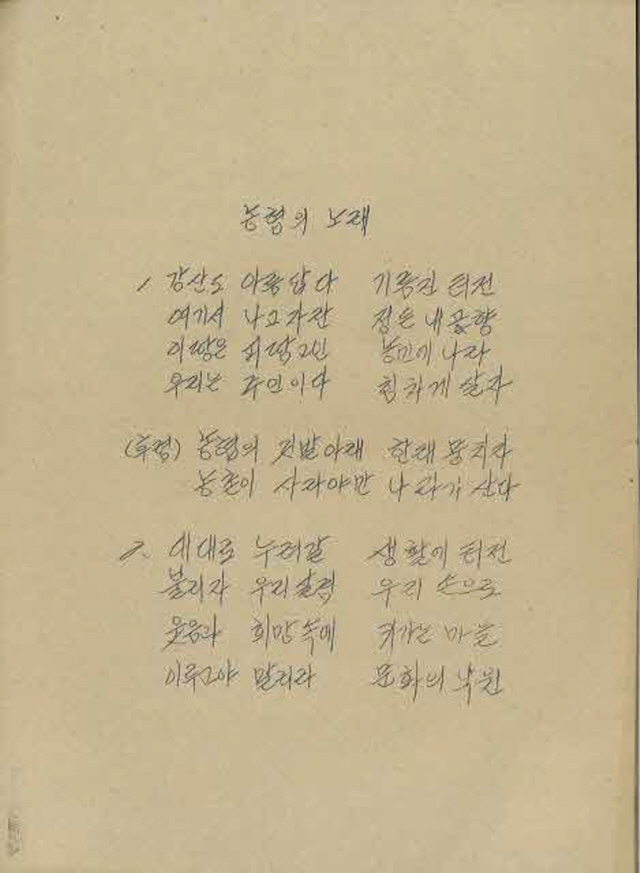 농협의 노래
1 강산도 아름답다 기름진 터전
여기서 나고 자란 정든 내 고향
이 땅은 피땀 고인 농민에 나라
우리는 주인이다 힘차게 살자
(후렴) 농협의 깃발아래 한데 뭉치자
농촌이 사라야만 나라가 산다
2. 대대로 누려갈 생활에 터전
불리자 우리살림 우리 손으로
웃음과 희망속에 커가는 마을
이루고야 말리라 문화의 낙원